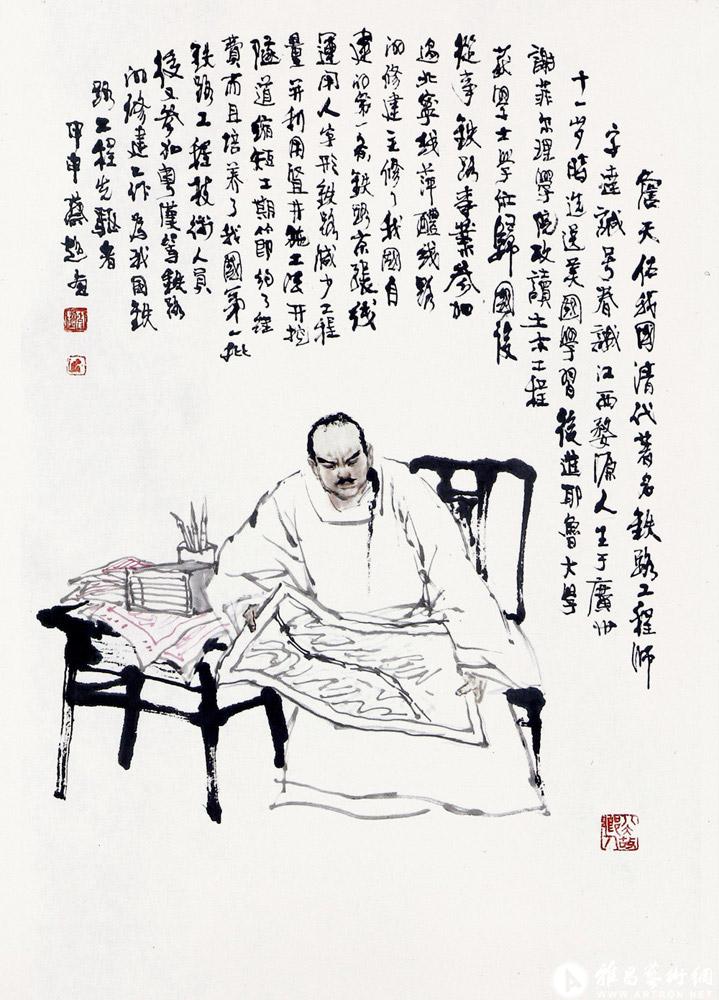 詹天佑我國清代著名鉄路工程師
字達誠号眷誠江西婺源人生于廣州
十一岁時造送美國學習後進耶魯大學
謝菲尔理學院攻讀土木工程
获學士學位歸國後
從事鉄路事業参加
过北寧线萍醴线路
的修建主修了我國自
建的第一条鉄路京張线
運用人字形鉄路减少工程
量并利用竖井施工法开挖
隧道缩短工期節約了经
費而且培养了我國第一批
鉄路工程技術人員
後又参加粤漢等鉄路
的修建工作為我国鉄
路工程先驅者
甲申蔡超畫
雅昌藝術網
WWW.ARTRON.NET